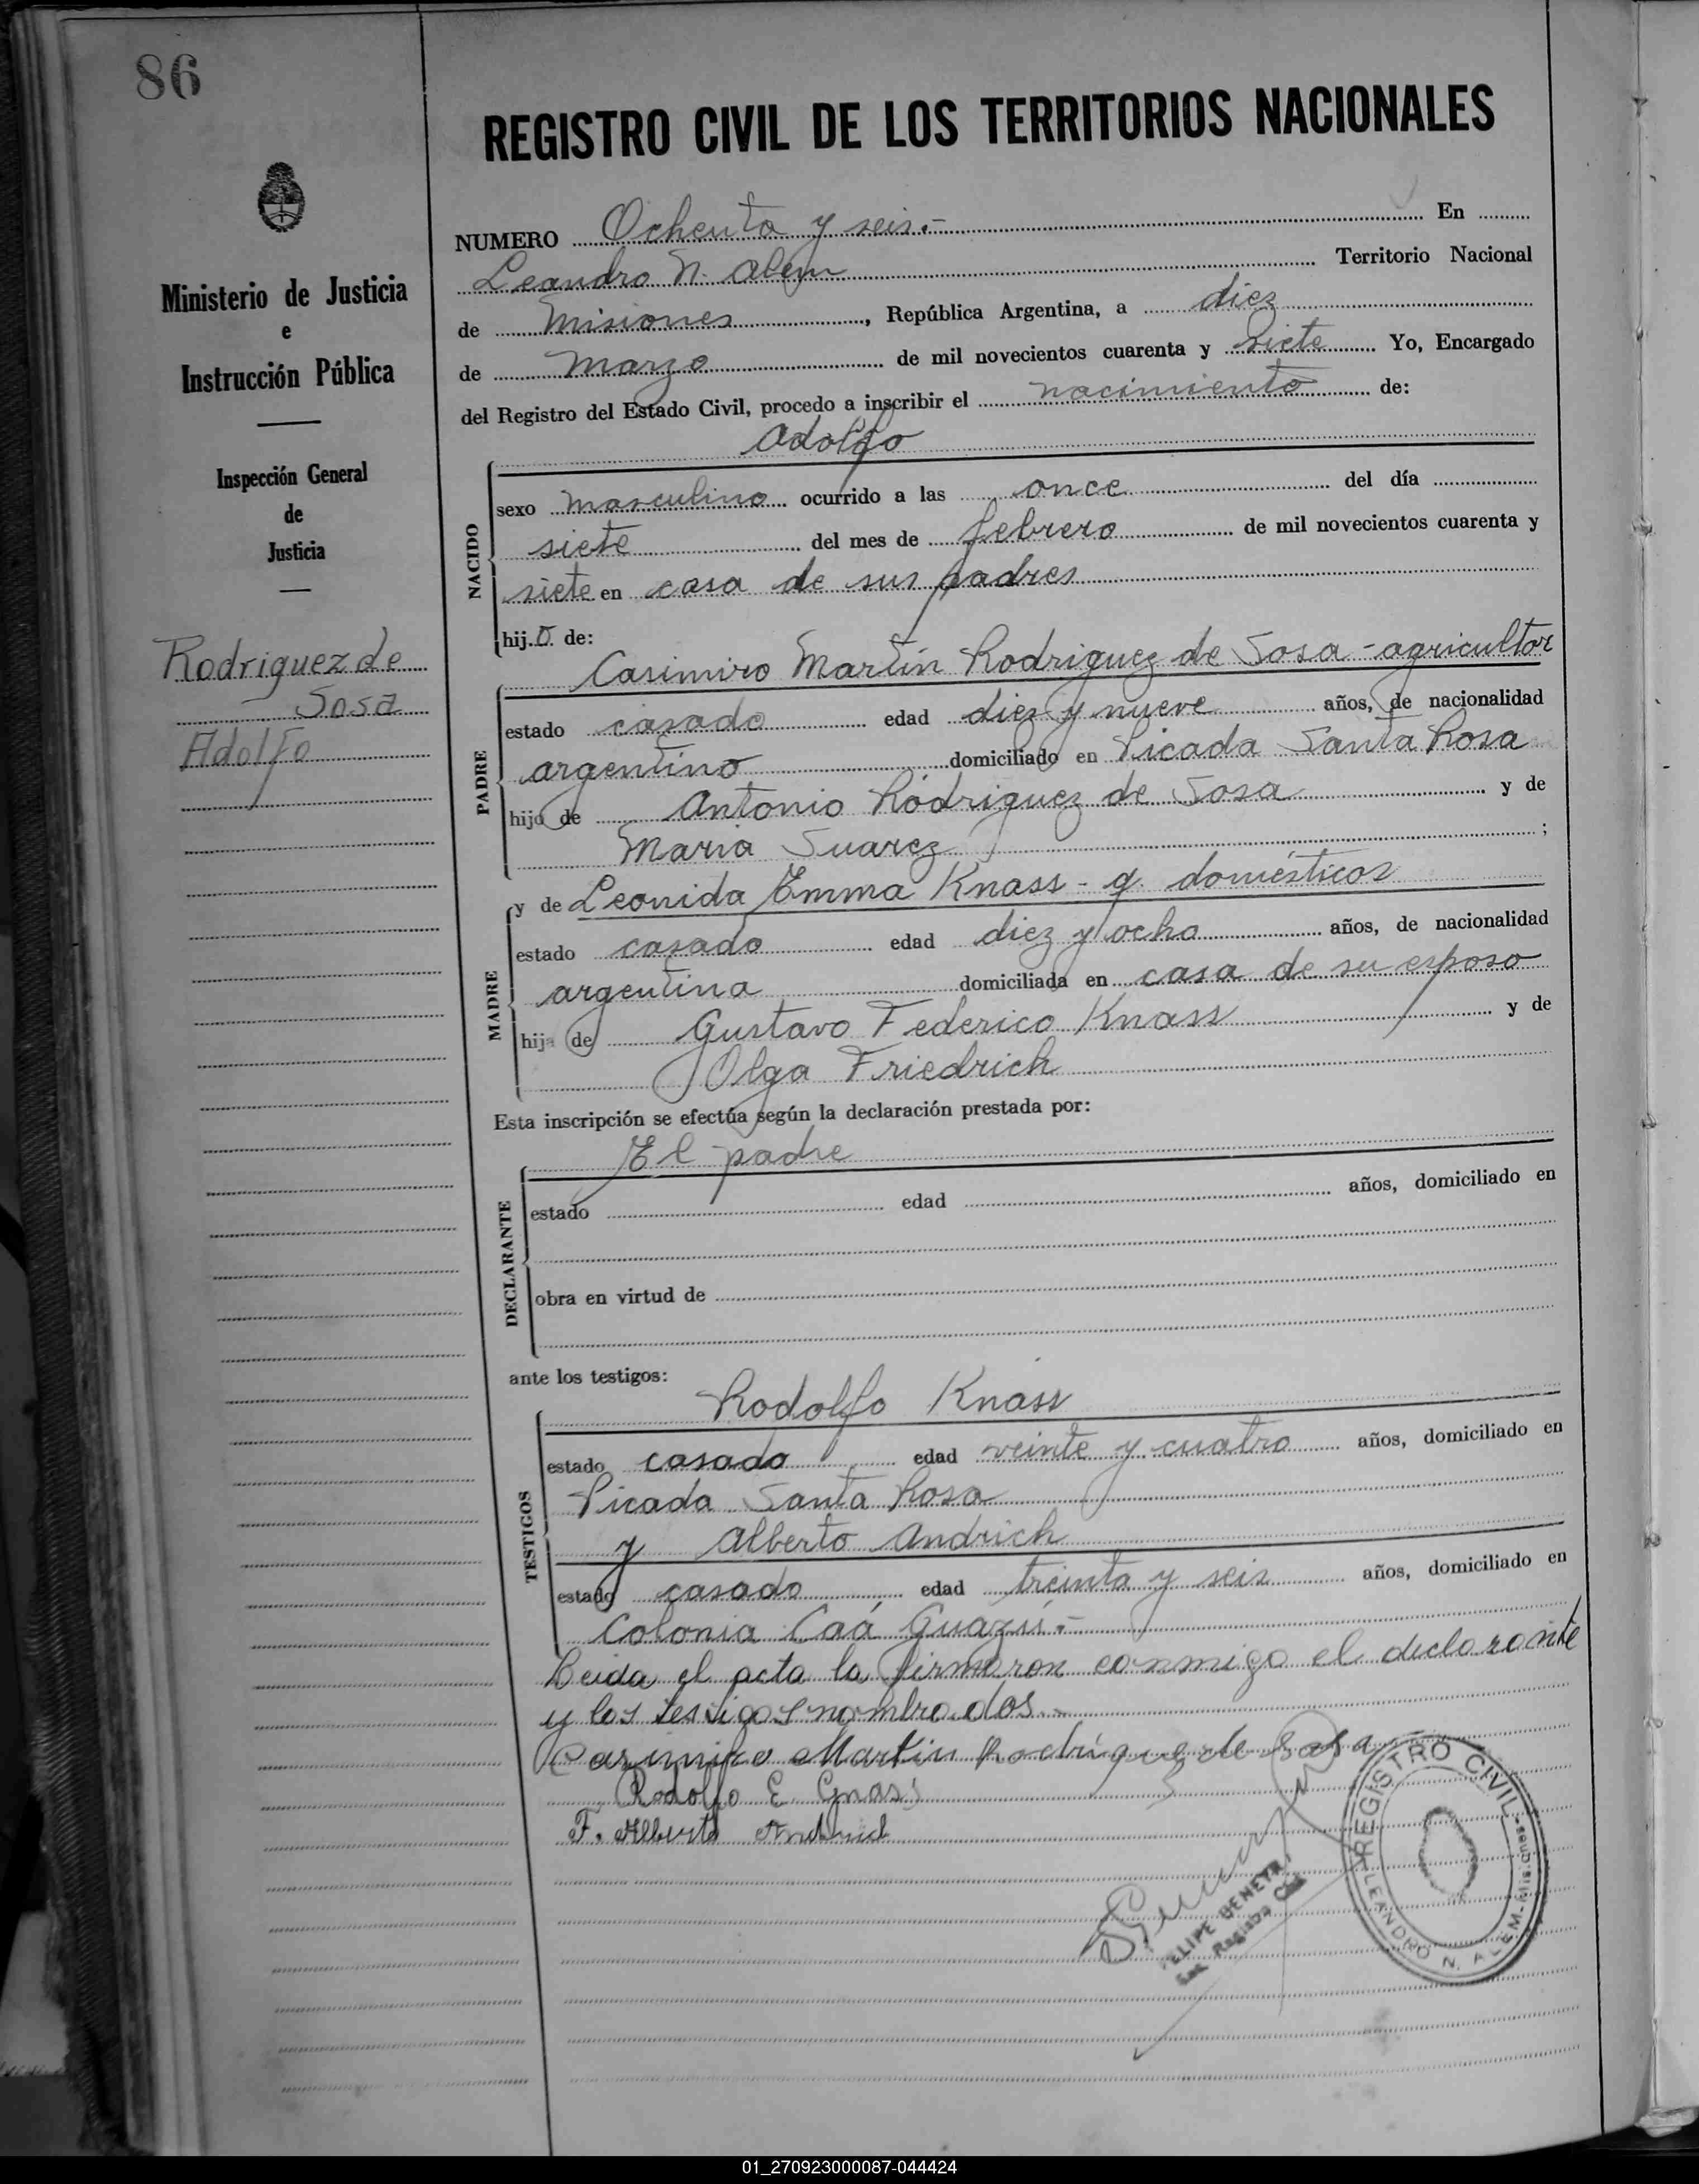 86
REGISTRO CIVIL DE LOS TERRITORIOS NACIONALES
Ministerio de Justicia
e
Instrucción Pública
Inspección General
de
Justicia
Rodriguez de
Sosa
Adolfo
NUMERO Ochenta y seis.- En
Leandro N. Alem Territorio Nacional
de Misiones, República Argentina, a diez
de marzo de mil novecientos cuarenta y siete Yo, Encargado
del Registro del Estado Civil, procedo a inscribir el nacimiento de:
Adolfo
NACIDO
sexo masculino ocurrido a las once del día
siete del mes de febrero de mil novecientos cuarenta y
siete en casa de sus padres
hijo de:
Casimiro Martín Rodriguez de Sosa - agricultor
PADRE
estado casado edad diez y nueve años, de nacionalidad
argentino domiciliado en Picada Santa Rosa
hijo de Antonio Rodriguez de Sosa y de
Maria Suarez ;
y de Leonida Emma Knass - q. domésticos
MADRE
estado casado edad diez y ocho años, de nacionalidad
argentina domiciliada en casa de su esposo
hija de Gustavo Federico Knass y de
Olga Friedrich
Esta inscripción se efectúa según la declaración prestada por:
El padre
DECLARANTE
estado edad años, domiciliado en
obra en virtud de
ante los testigos:
Rodolfo Knass
TESTIGOS
estado casado edad veinte y cuatro años, domiciliado en
Picada Santa Rosa
y Alberto Andrich
estado casado edad treinta y seis años, domiciliado en
Colonia Caá Guazú.-
Leida el acta la firmaron conmigo el declarante
y los testigos nombrados.-
Casimiro Martin Rodriguez de Sosa
Rodolfo E Gnass
F. Alberto Andrich
FELIPE BENEYA
Enc. Registro Civil
REGISTRO CIVIL
LEANDRO N. ALEM-Misiones-
01_270923000087-044424